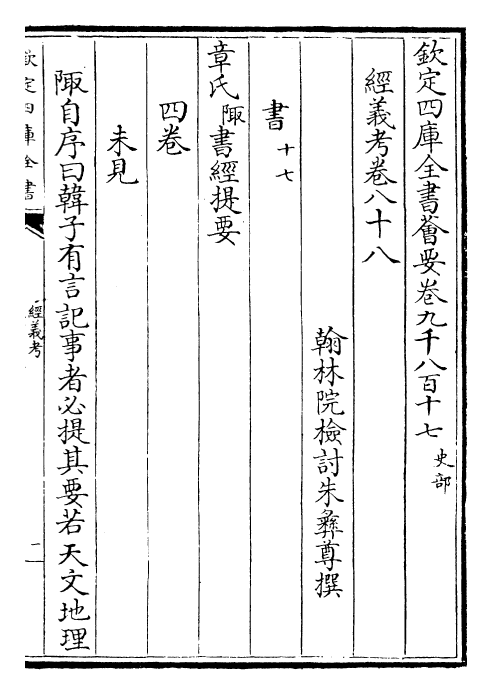 欽定四庫全書薈要卷九千八百十七 史部
經義考卷八十八
翰林院檢討朱彞尊撰
書 十七
章氏陬書經提要
四卷
未見
陬自序曰韓子有言記事者必提其要若天文地理
欽定四庫全書
經義考
二